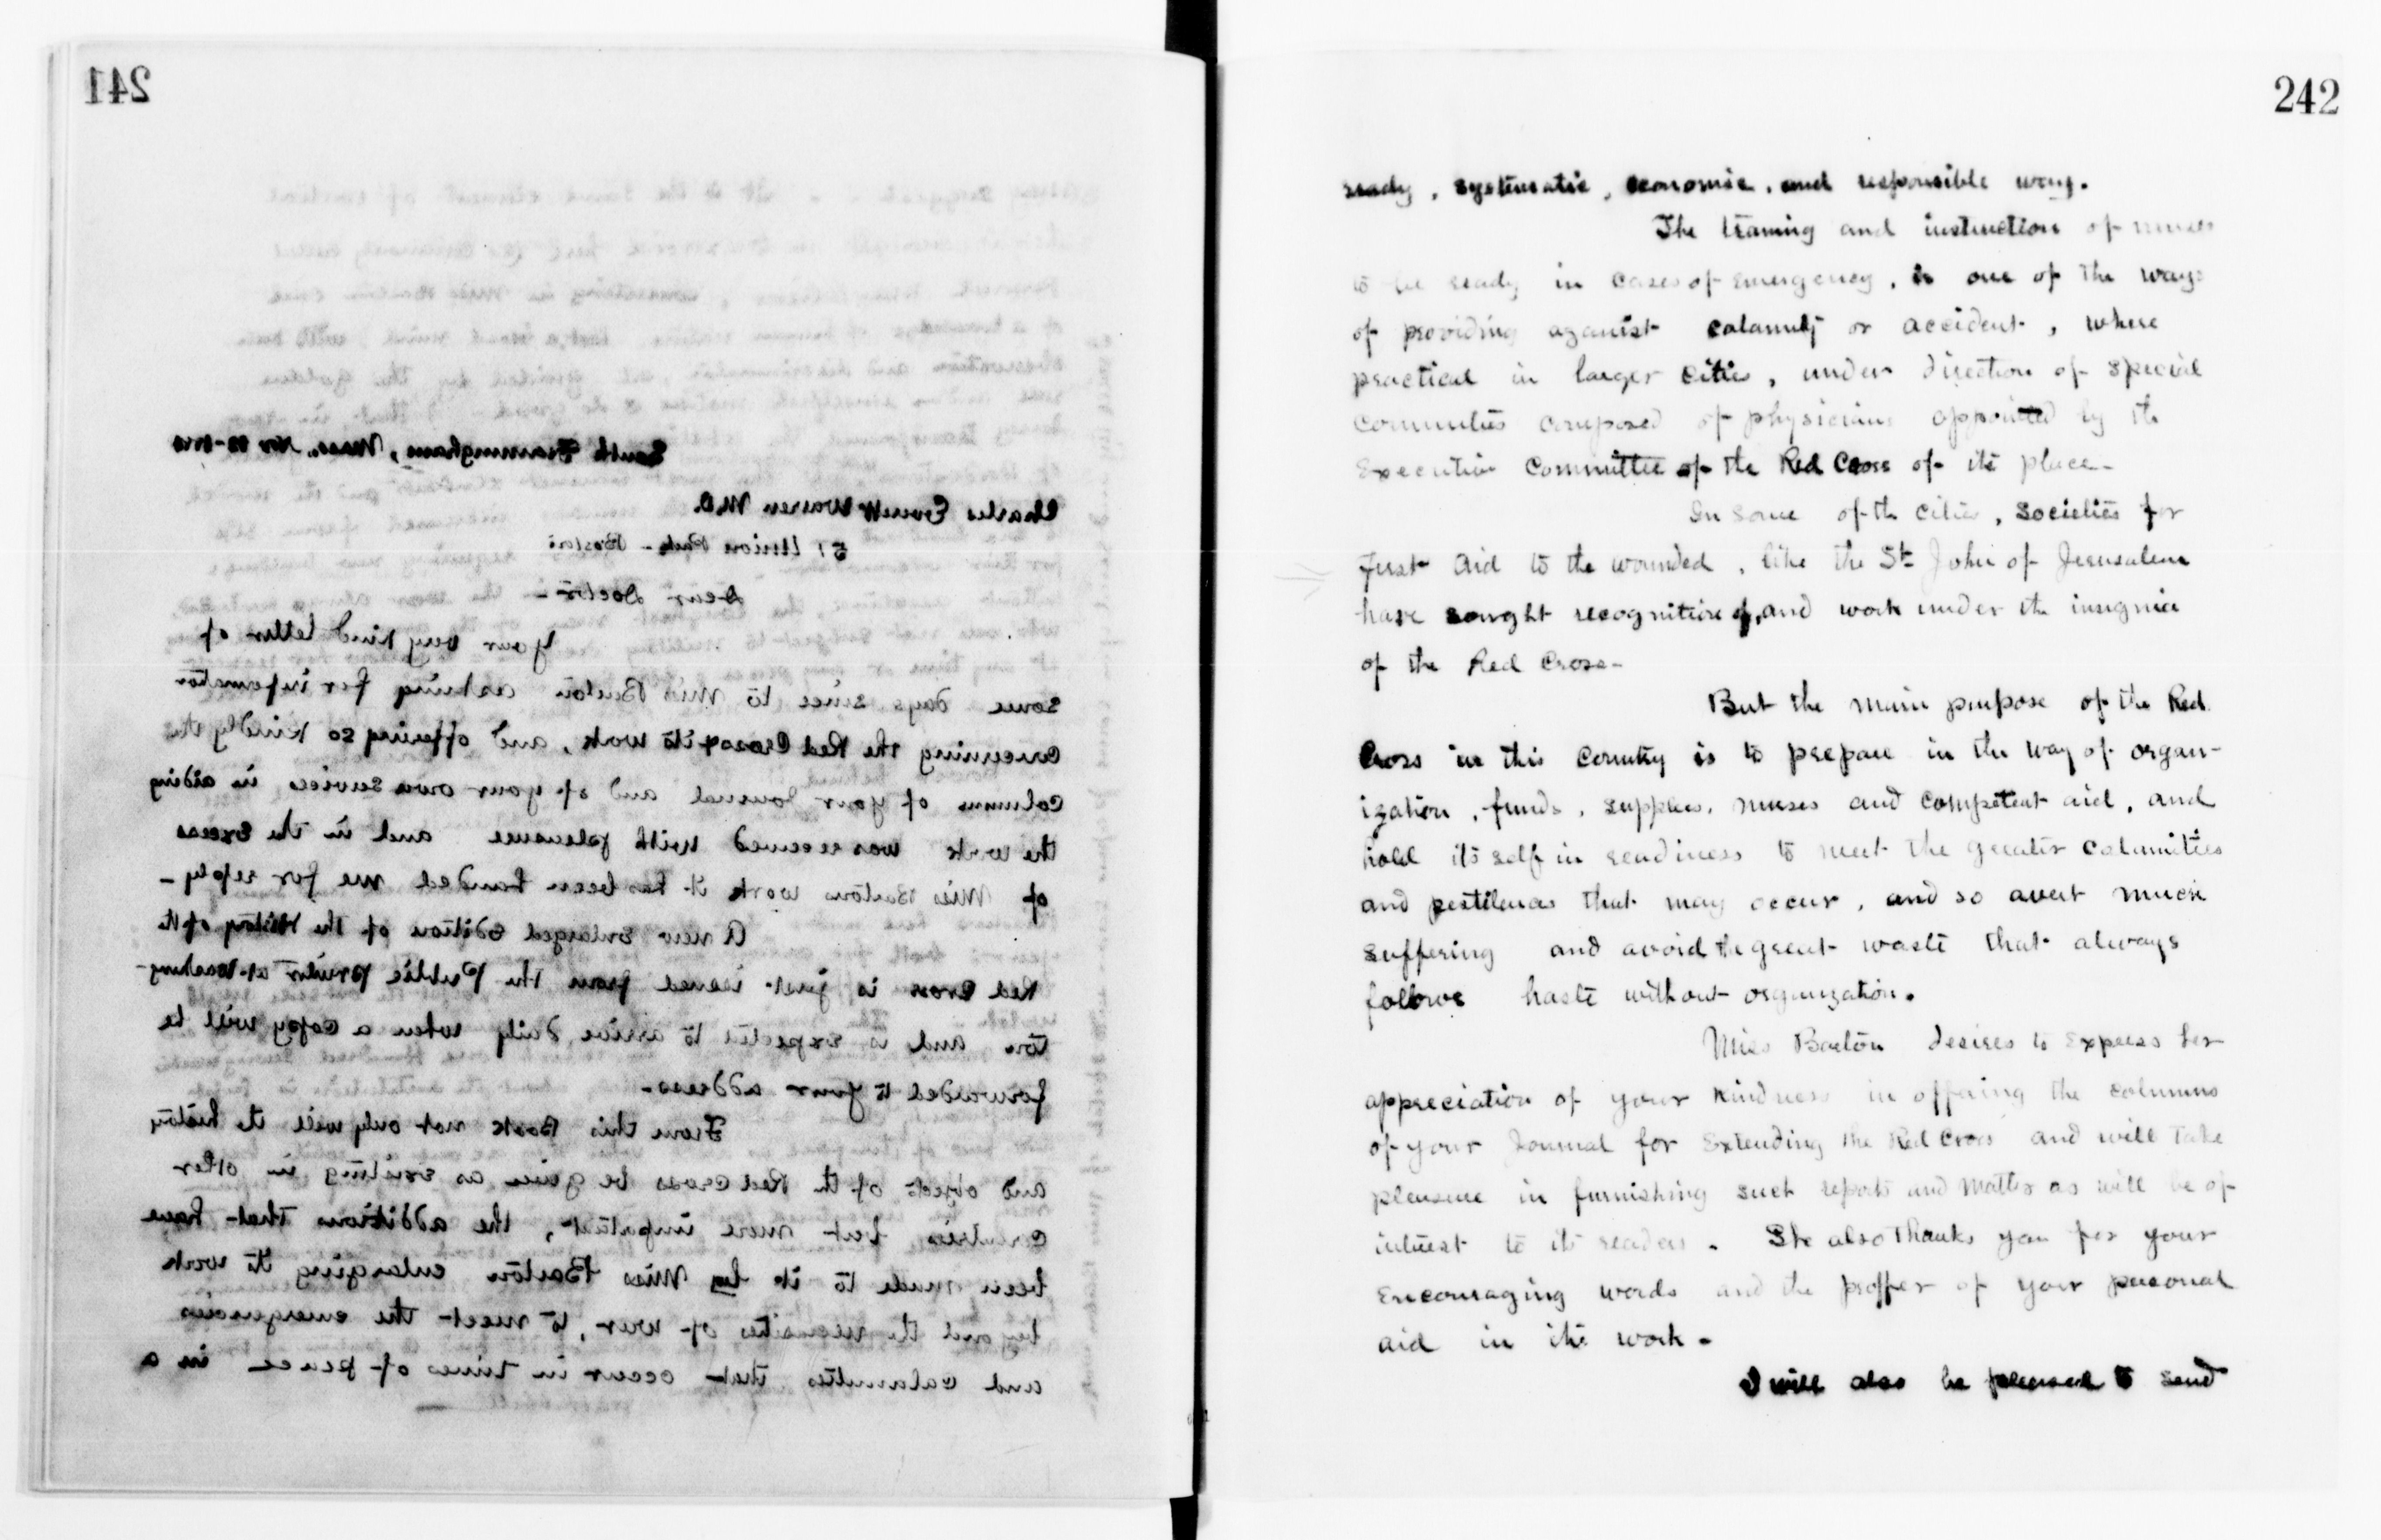 241
South Framingham, Mass. Nov 22-
Charles Everett Warren M.D.
51 Union Park - Boston
Dear Doctor -
Your very kind letter of
some days since to Miss Barton asking for information
concerning the Red Cross & its work, and offering so kindly the
columns of your Journal and of your own services in aiding
the work was received with pleasure and in the excess
of Miss Bartons work it has been handed me for reply -
A new enlarged edition of the History of the
Red Cross is just issued from the Public printer at Washing-
ton and is expected to arrive daily when a copy will be
forwarded to your address -
From this Book not only will the history
and objects of the Red Cross be given as existing in other
countries but more important, the additions that have
been made to it by Miss Barton enlarging its work
beyond the necessities of war, to meet the emergencies
and calamities that occur in times of peace in a
242
ready, systematic, economic, and responsible way.
The training and instruction of nurses
to be ready in cases of emergency, is one of the ways
of providing aganist calamity or accident, where
practical in larger cities, under direction of special
Committes composed of physicians appointed by the
Executive Committee of the Red Cross of its place -
In some of the cities, societies for
First Aid to the wounded, like the St John of Jerusalem
have sought recognition of, and work under the insignia
of the Red Cross -
But the main purpose of the Red
Cross in this Country is to prepare in the way of organ-
ization, funds, supplies, nurses and competent aid, and
hold its self in readiness to meet the greater calamities
and pestilences that may occur, and so avert much
suffering and avoid the great waste that always
follows haste without organization.
Miss Barton desires to express her
appreciation of your kindness in offering the columns
of your Journal for extending the Red Cross and will take
pleasure in furnishing such reports and matter as will be of
interest to its readers. She also thanks you for your
encouraging words and the proffer of your personal
aid in its work -
I will also be pleased to send